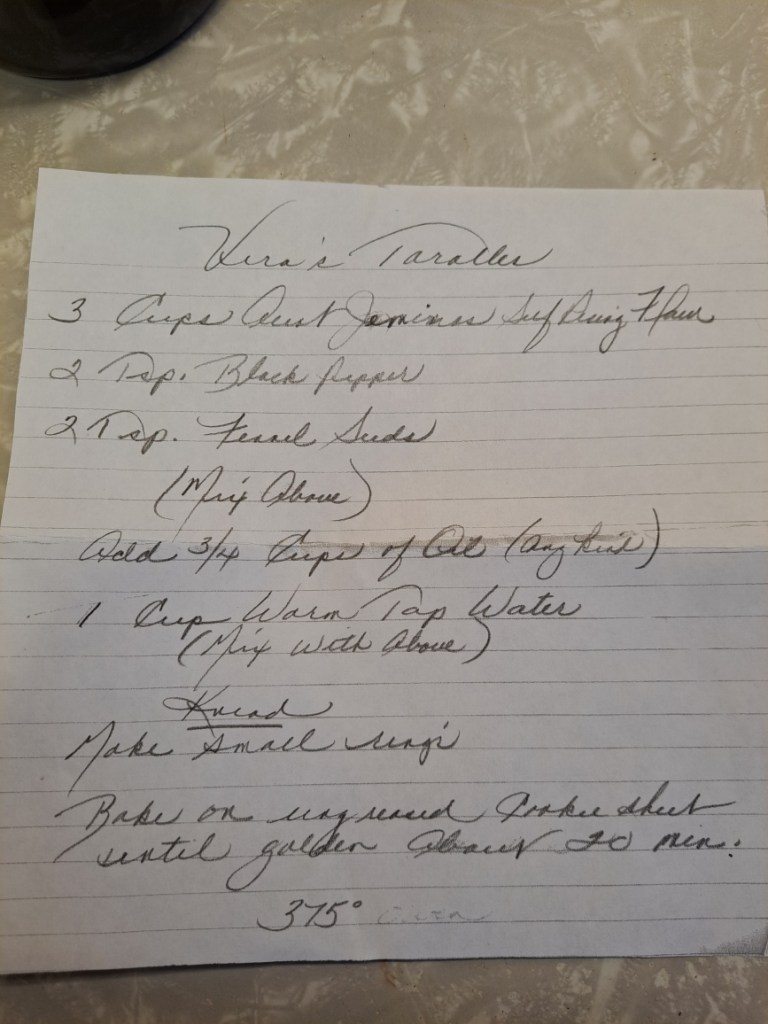 Vera's Taralles
3 Cups Aunt Jemimas Self Rising Flour
2 Tsp. Black Pepper
2 Tsp. Fennel Seeds
(Mix Above)
Add 3/4 Cups of Oil (any kind)
1 Cup Warm Tap Water
(Mix With Above)
Knead
Make Small rings
Bake on ungreased Cookie sheet
until golden About 20 min.
375° oven